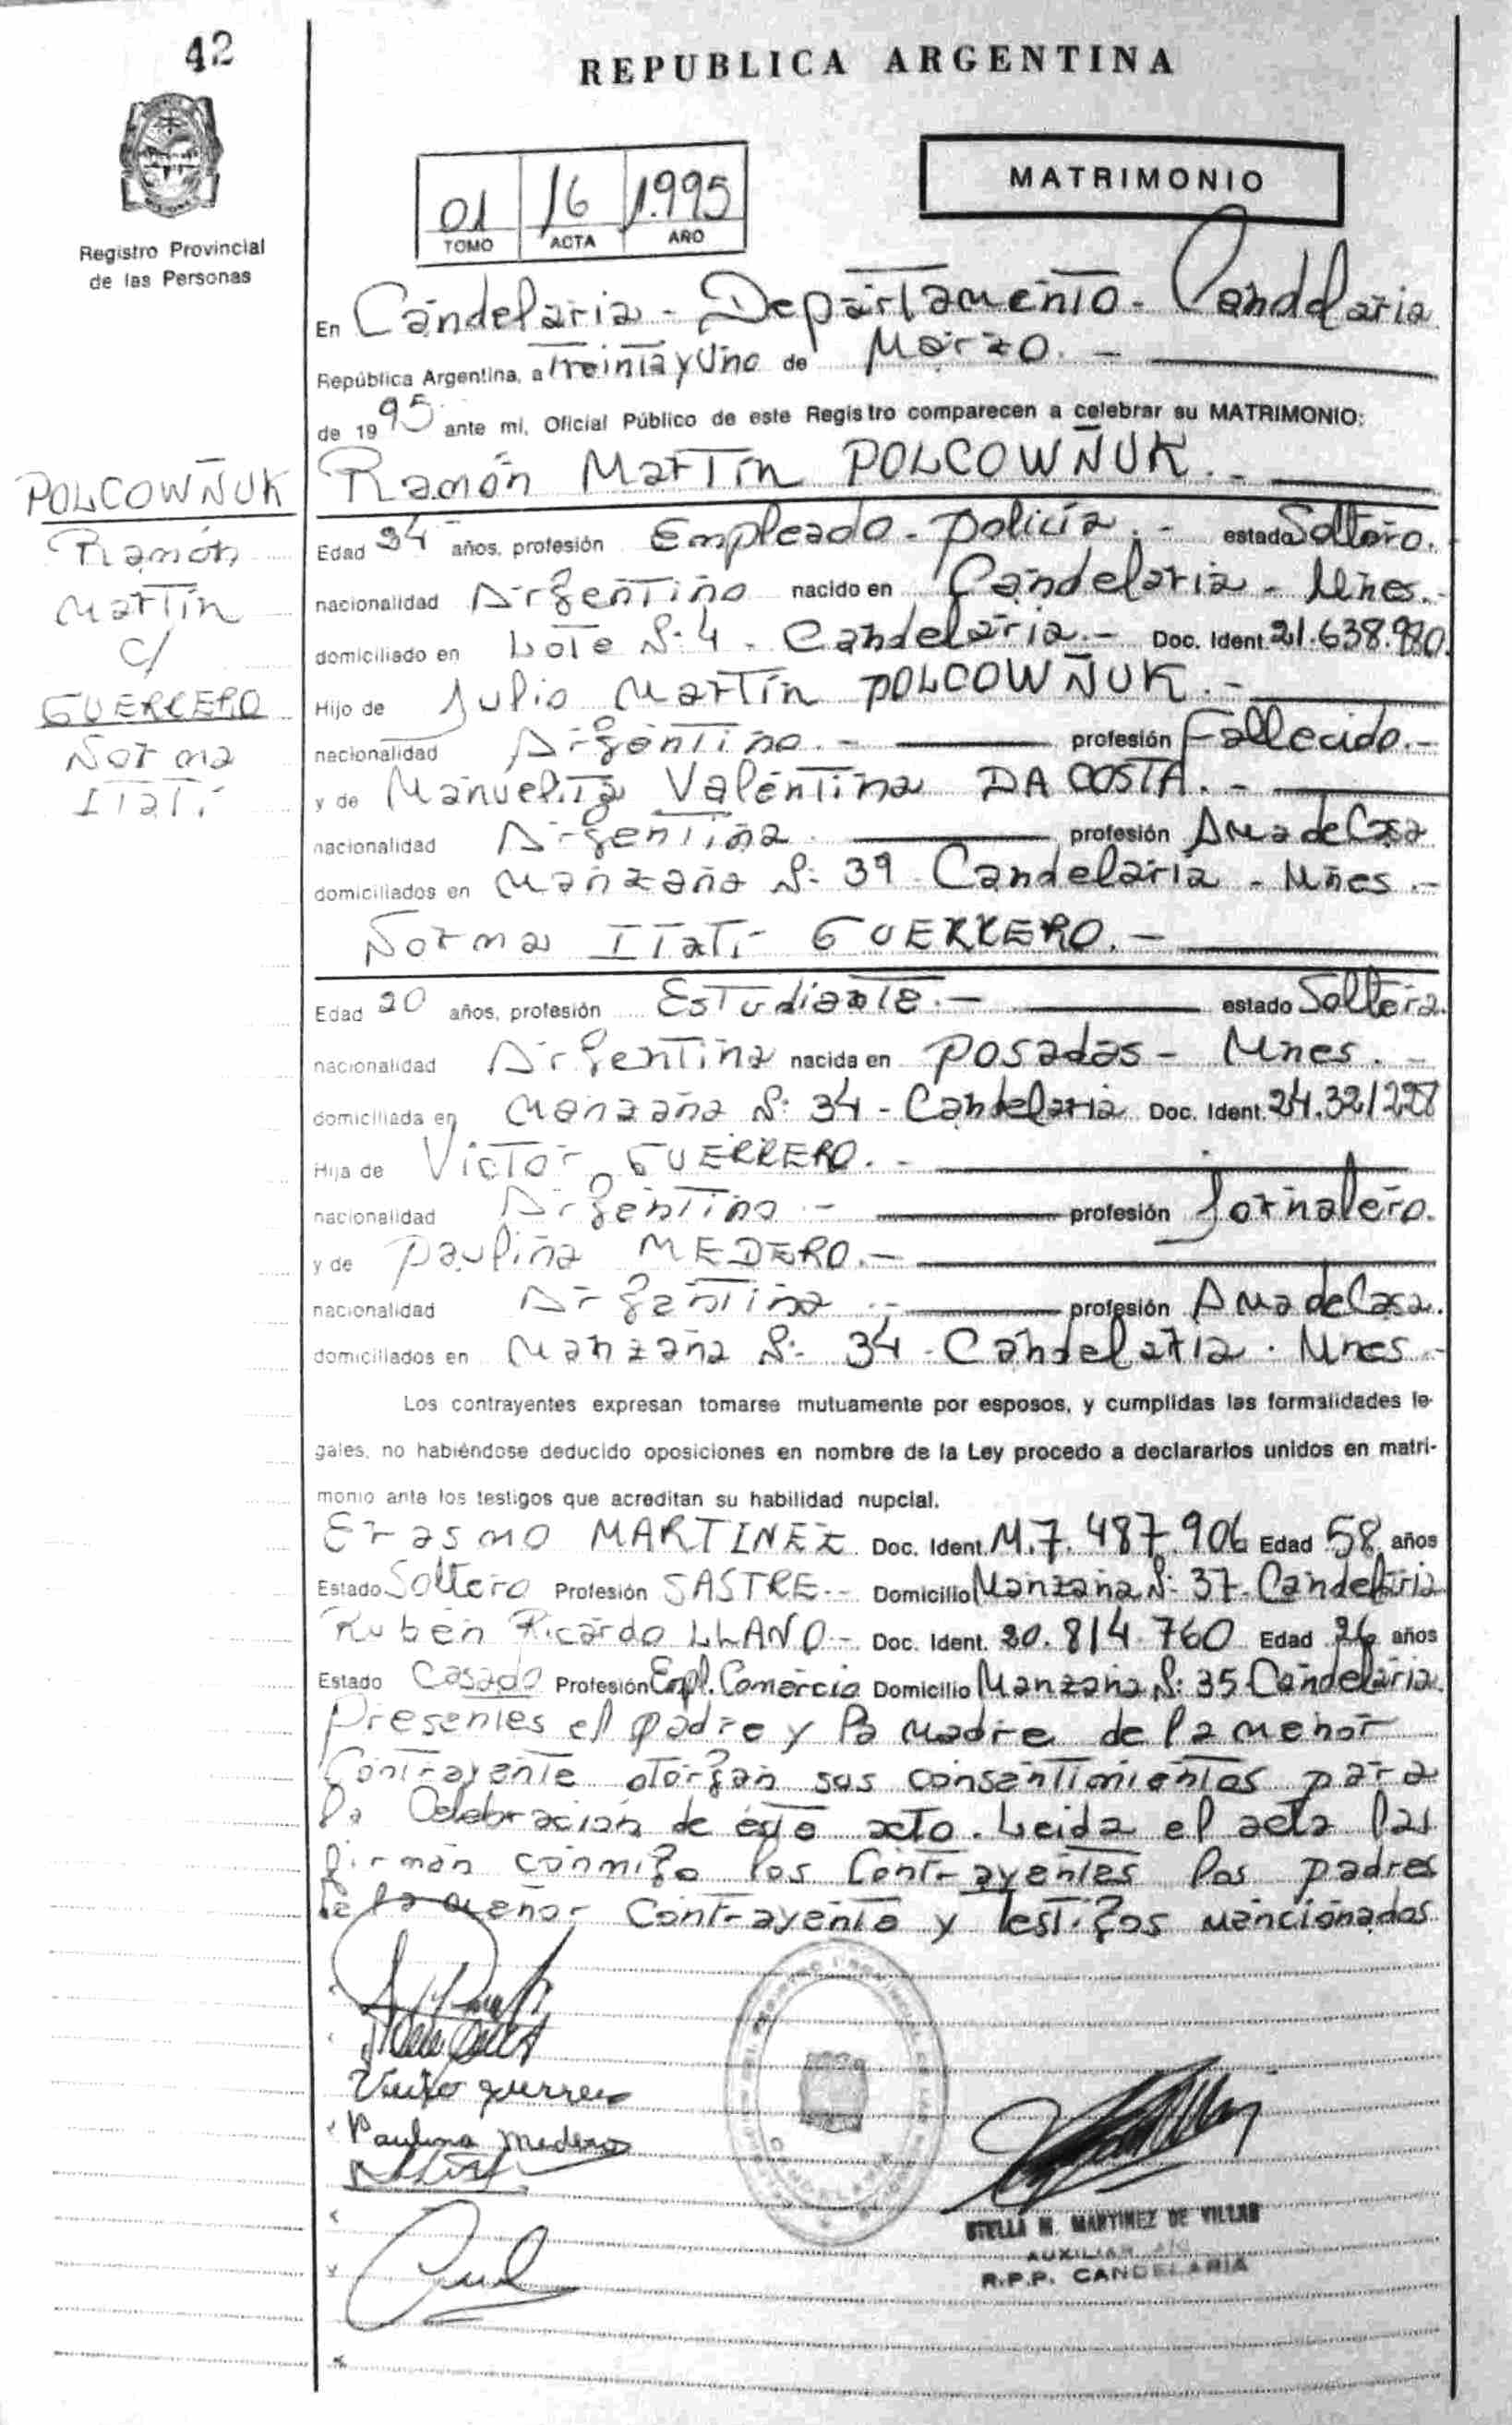 42
REPUBLICA ARGENTINA
Registro Provincial
de las Personas
01 16 1.995
TOMO ACTA AÑO
MATRIMONIO
En Candelaria - Departamento - Candelaria
República Argentina, a Treinta y Uno de Marzo. -
de 1995 ante mi, Oficial Público de este Registro comparecen a celebrar su MATRIMONIO:
Ramón Martín POLCOWÑUK. -
POLCOWÑUK
Ramón
Martín
c/
GUERRERO
Norma
Itatí
Edad años, profesión Empleado - policía. - estado Soltero.
nacionalidad Argentino nacido en Candelaria - Mnes. -
domiciliado en Lote Nº 4 - Candelaria. - Doc. Ident. 21.638.
Hijo de Julio Martín POLCOWÑUK. -
nacionalidad Argentino. - profesión Fallecido. -
y de Manuelita Valentina DA COSTA. -
nacionalidad Argentina. profesión Ama de Casa
domiciliados en Manzana Nº 39 Candelaria - Mnes. -
Norma Itatí GUERRERO. -
Edad 20 años, profesión Estudiante. - estado Soltera.
nacionalidad Argentina nacida en Posadas - Mnes. -
domiciliada en Manzana Nº 34 - Candelaria Doc. Ident. 24.321
Hija de Victor GUERRERO. -
nacionalidad Argentino - profesión Jornalero.
y de Paulina MEDERO. -
nacionalidad Argentina - profesión Ama de Casa.
domiciliados en Manzana Nº 34 - Candelaria - Mnes. -
Los contrayentes expresan tomarse mutuamente por esposos, y cumplidas las formalidades le-
gales, no habiéndose deducido oposiciones en nombre de la Ley procedo a declararlos unidos en matri-
monio ante los testigos que acreditan su habilidad nupcial.
Erasmo MARTINEZ Doc. Ident. M.7.487.906 Edad 58 años
Estado Soltero Profesión SASTRE - Domicilio Manzana Nº 37 - Candelaria
Rubén Ricardo LLANO - Doc. Ident. 20.814.760 Edad 26 años
Estado Casado Profesión Empl. Comercio Domicilio Manzana Nº 35 Candelaria
Presentes el padre y la madre de la menor
Contrayente otorgan sus consentimientos para
la Celebración de este acto. Leida el acta las
firman conmigo los Contrayentes los padres
de la menor Contrayente y testigos mencionados
Victor guerrero
Paulina Medero
STELLA M. MARTINEZ DE VILLAR
AUXILIAR A/C
R.P.P. CANDELARIA